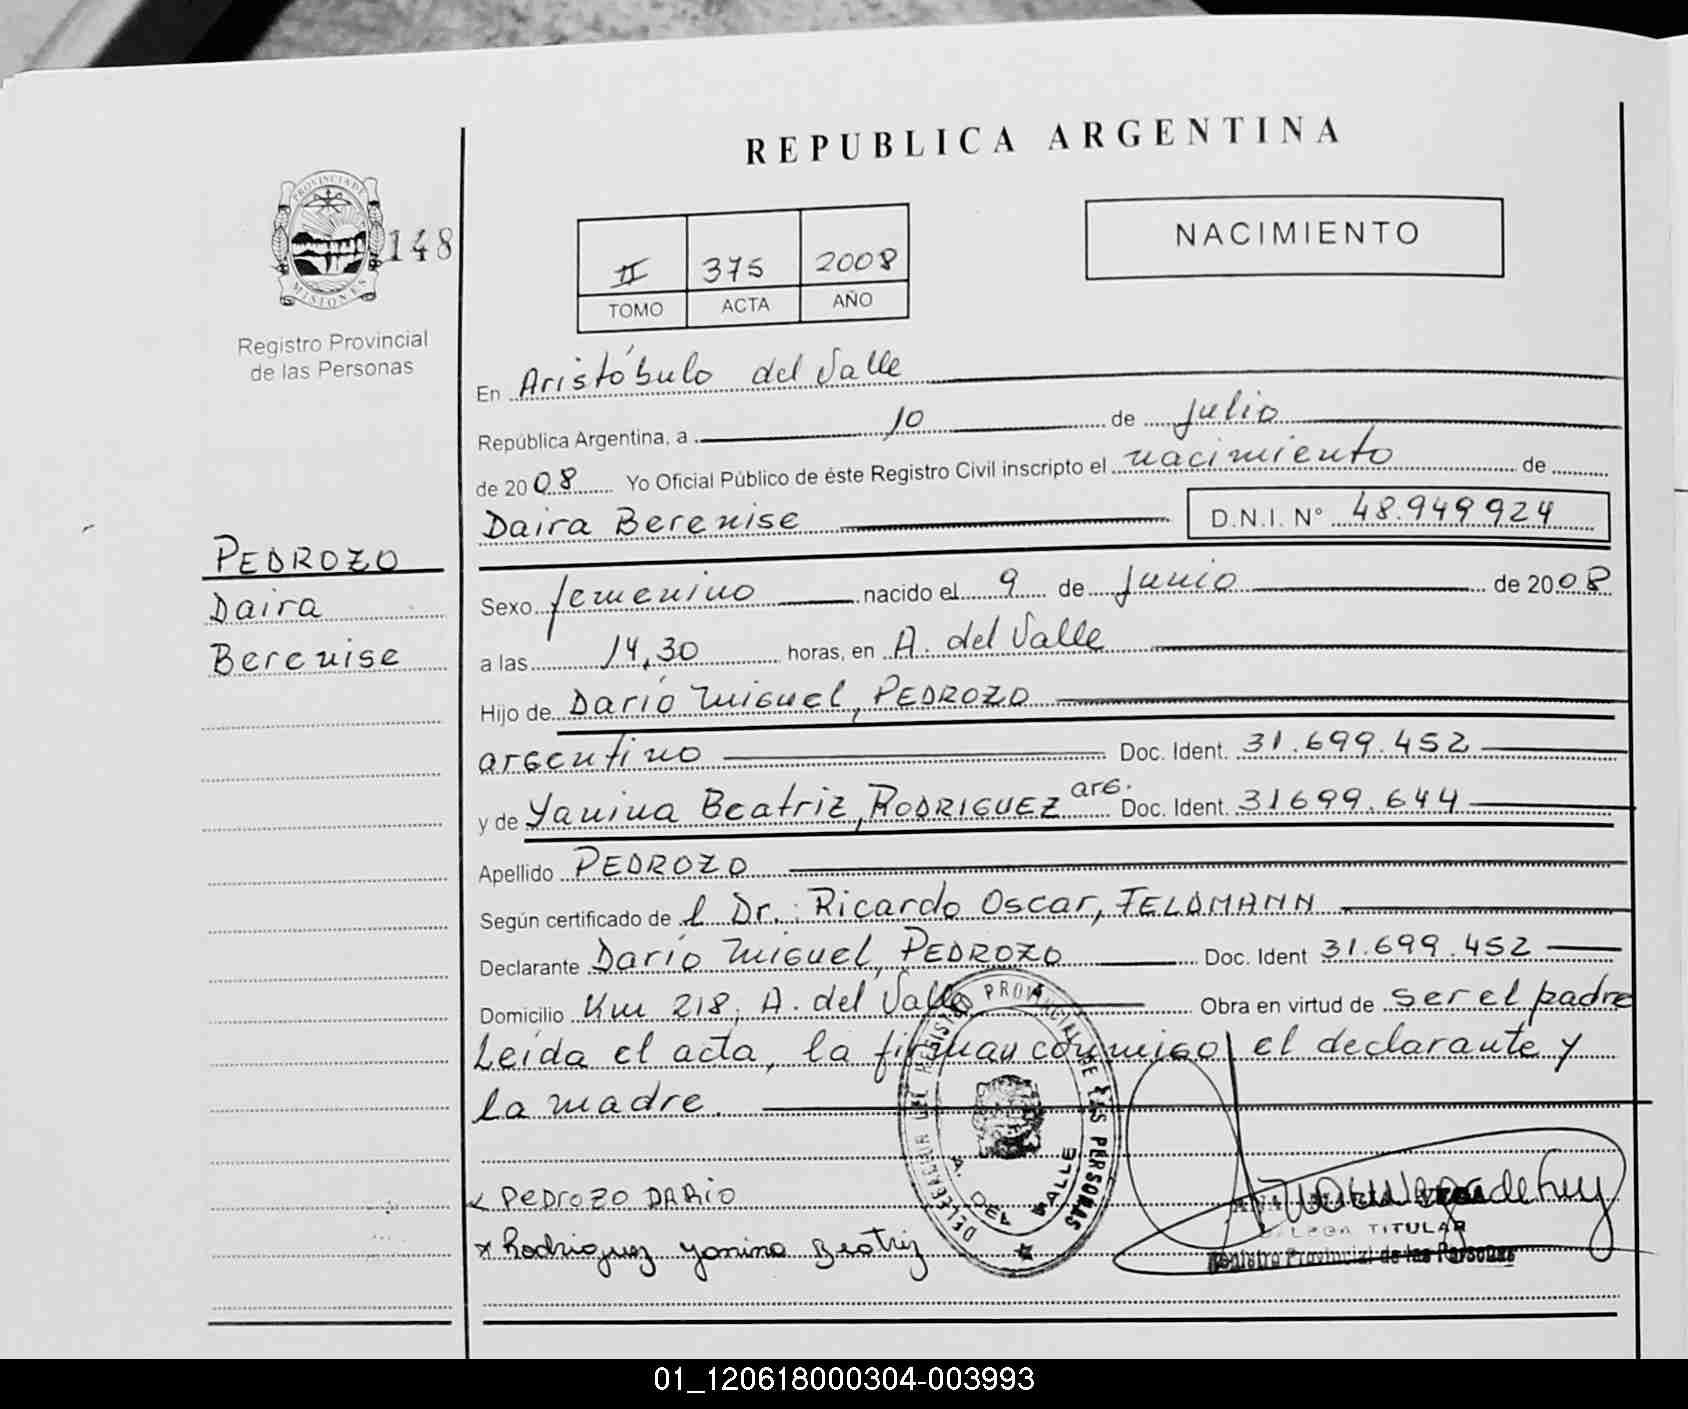 REPUBLICA ARGENTINA
PROVINCIA DE
MISIONES
148
Registro Provincial
de las Personas
NACIMIENTO
II 375 2008
TOMO ACTA AÑO
En Aristóbulo del Valle
República Argentina, a 10 de Julio
de 2008 Yo Oficial Público de éste Registro Civil inscripto el nacimiento de
Daira Berenise D.N.I. N° 48.949924
PEDROZO
Daira
Berenise
Sexo femenino nacido el 9 de Junio de 2008
a las 14,30 horas, en A. del Valle
Hijo de Darío Miguel, PEDROZO
argentino Doc. Ident. 31.699.452
y de Yanina Beatriz, RODRIGUEZ arg. Doc. Ident. 31699.644
Apellido PEDROZO
Según certificado de l Dr.: Ricardo Oscar, FELDMANN
Declarante Darío Miguel, PEDROZO Doc. Ident 31.699.452
Domicilio Km 218, A. del Valle Obra en virtud de ser el padre
Leída el acta, la firman conmigo el declarante y
la madre.
DELEGACION DEL REGISTRO PROVINCIAL DE LAS PERSONAS
A. DEL VALLE
x PEDROZO DARIO
x Rodriguez Yanina Beatriz
TITULAR
Registro Provincial de las Personas
01_120618000304-003993